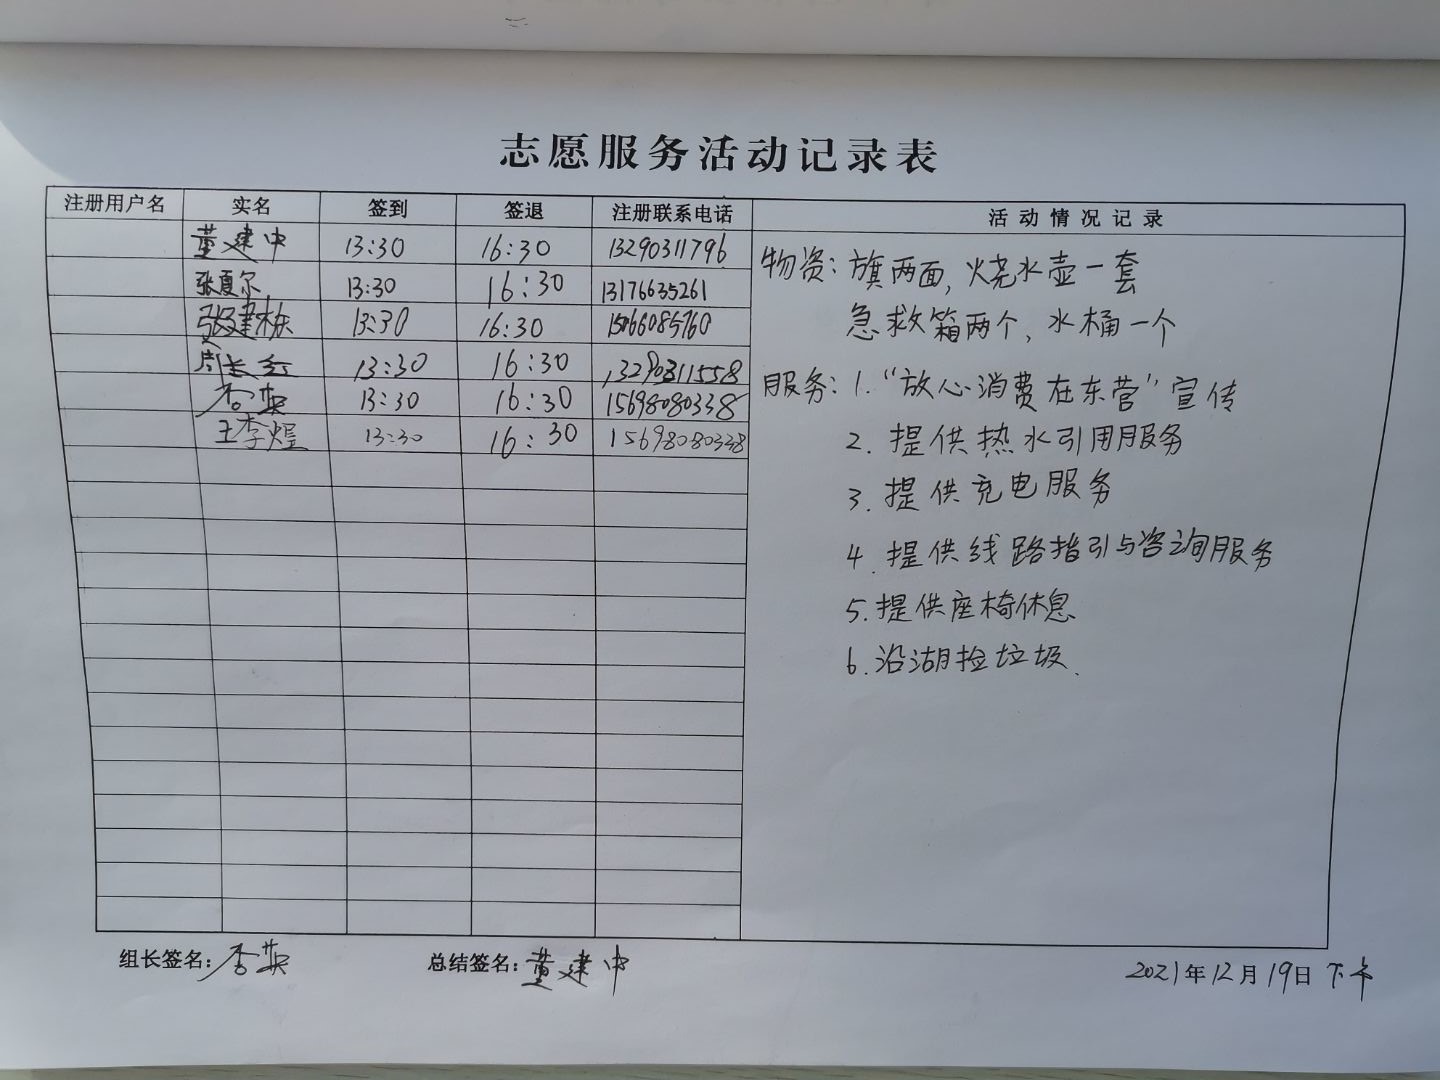 志愿服务活动记录表
注册用户名 实名 签到 签退 注册联系电话 活动情况记录
董建中 13:30 16:30 13290311796
张夏尔 13:30 16:30 13176635261
张建栋 13:30 16:30 15066085760
周长红 13:30 16:30 13290311558
李英 13:30 16:30 15698080338
王李煜 13:30 16:30 15698080338
物资：旗两面，烧水壶一套
急救箱两个，水桶一个
服务：1.“放心消费在东营”宣传
2.提供热水引用服务
3.提供充电服务
4.提供线路指引与咨询服务
5.提供座椅休息
6.沿湖捡垃圾、
组长签名：李英 总结签名：董建中 2021年12月19日 下午